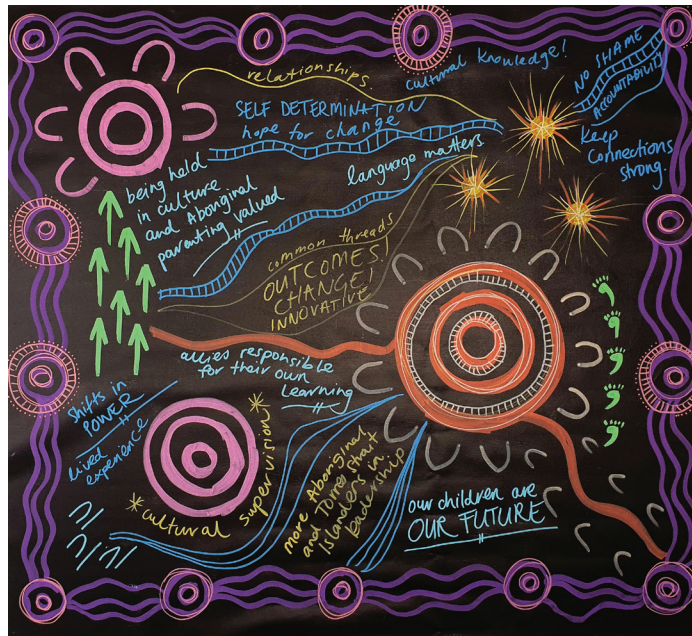 relationships
cultural knowledge!
NO SHAME
ACCOUNTABILITY
SELF DETERMINATION
hope for change
Keep
Connections
strong.
language matters
being held
in culture
and Aboriginal
parenting valued
common threads
OUTCOMES!
CHANGE!
INNOVATIVE
allies responsible
for their own
Learning
Shifts in
POWER
lived
experience
*cultural supervision*
more Aboriginal
and Torres Strait
Islanders in
leadership
our children are
OUR FUTURE